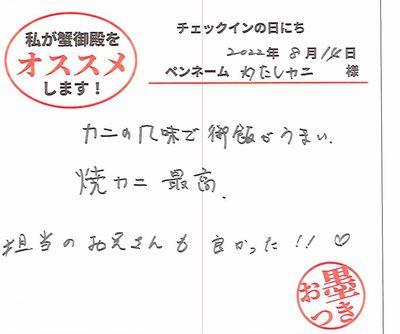 私が蟹御殿を
オススメ
します！
チェックインの日にち
2022年 8月 14日
ペンネーム わたしカニ 様
カニの風味で御飯がうまい。
焼カニ 最高。
担当のお兄さんも良かった!! ♡
お墨つき